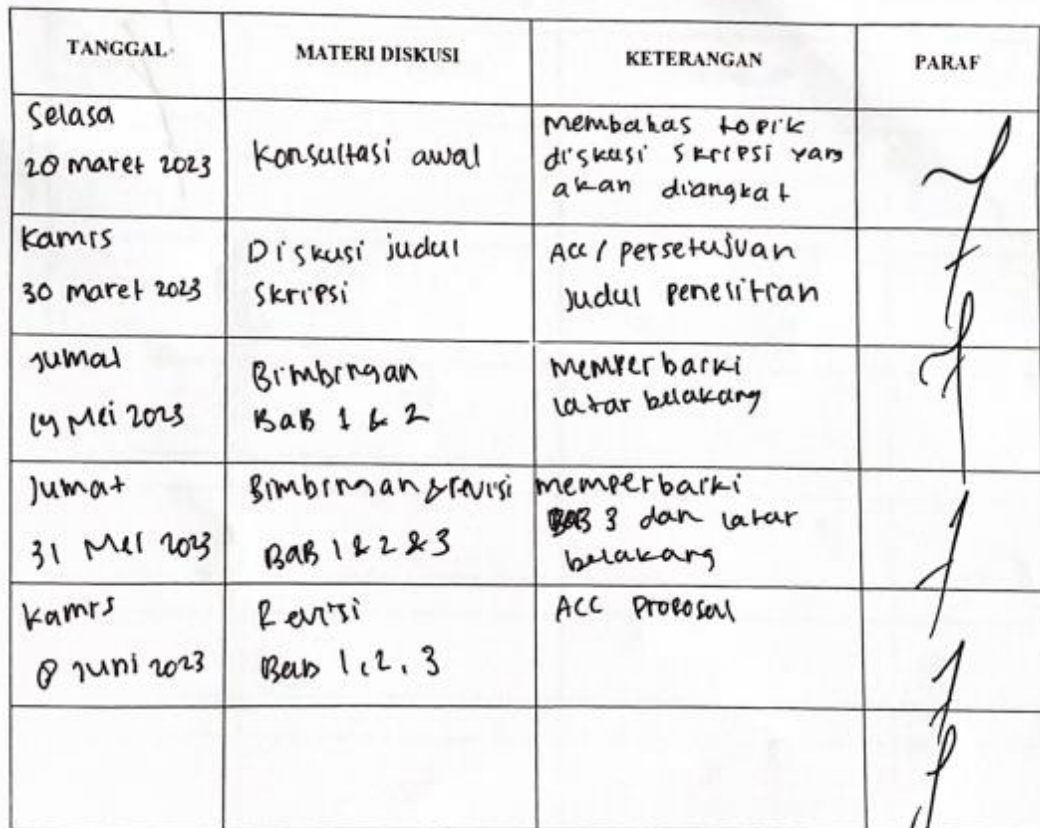 TANGGAL MATERI DISKUSI KETERANGAN PARAF
Selasa
28 maret 2023
Konsultasi awal
Membahas topik
diskusi skripsi yang
akan diangkat
Kamis
30 maret 2023
Diskusi judul
Skripsi
Acc / persetujuan
Judul penelitian
Jumat
19 Mei 2023
Bimbingan
BaB 1 & 2
memperbaiki
latar belakang
Jumat
31 Mei 2023
Bimbingan & revisi
BAB 1 & 2 & 3
memperbaiki
BAB 3 dan latar
belakang
Kamis
8 Juni 2023
Revisi
Bab 1, 2, 3
ACC Proposal